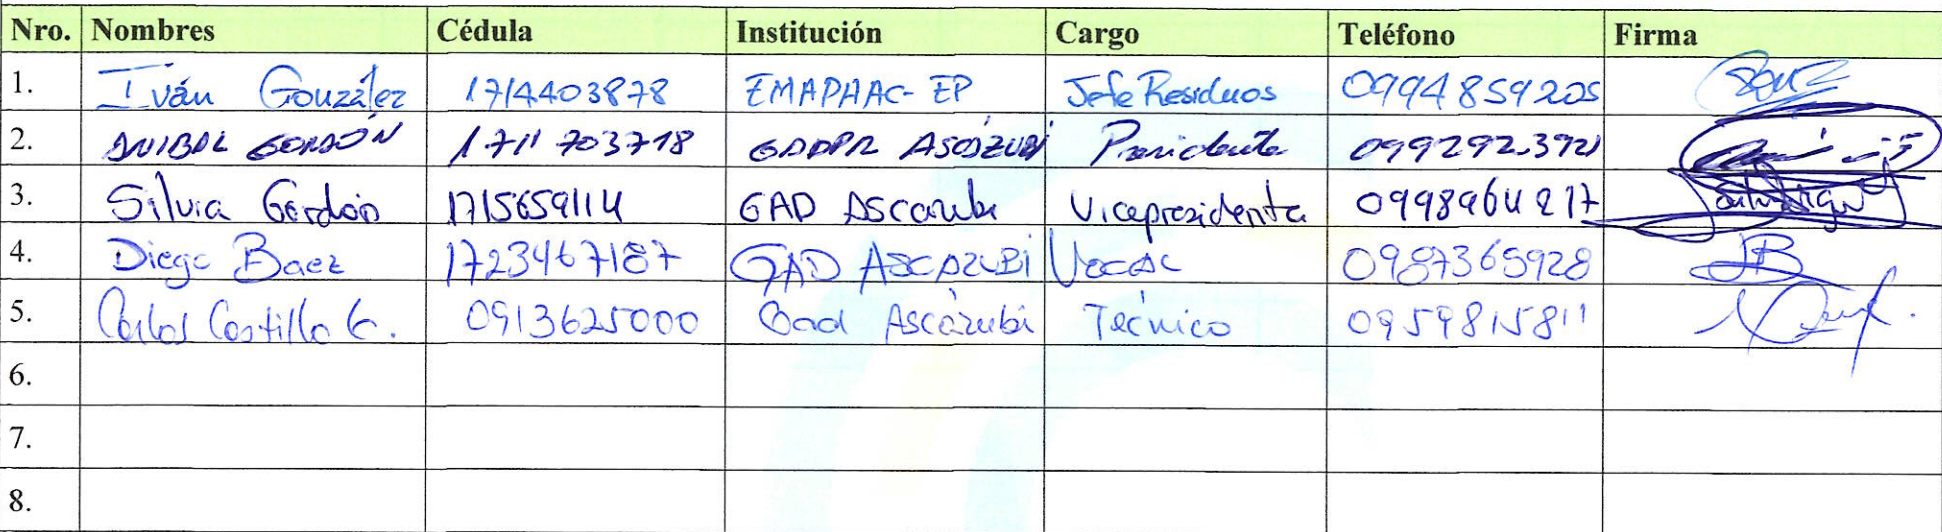 Nro. Nombres Cédula Institución Cargo Teléfono Firma
1. Iván González 1714403878 EMAPHAC-EP Jefe Residuos 0994859205
2. ANIBAL GORDÓN 1711703718 GADPR ASCÁZUBI Presidente 0992923921
3. Silvia Gordón 1715659114 GAD Ascazubi Vicepresidenta 0998964217
4. Diego Baez 1723467187 GAD ASCAZUBI Vocal 0987365928
5. Carlos Castillo G. 0913625000 Gad Ascázubi Técnico 0959815811
6.
7.
8.